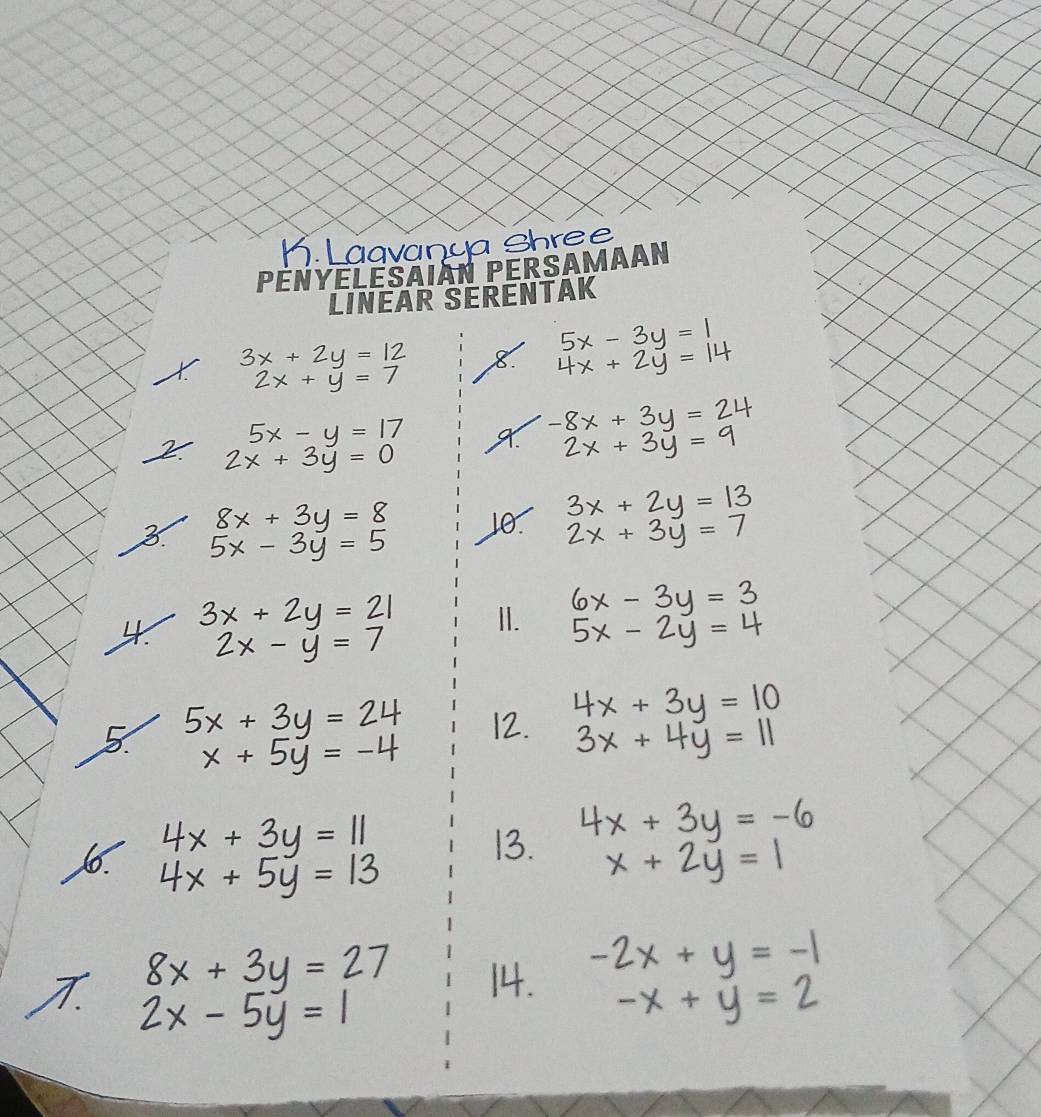 K. Laavanya Shree
PENYELESAIAN PERSAMAAN
LINEAR SERENTAK
1. 3x + 2y = 12
2x + y = 7
2. 5x - y = 17
2x + 3y = 0
3. 8x + 3y = 8
5x - 3y = 5
4. 3x + 2y = 21
2x - y = 7
5. 5x + 3y = 24
x + 5y = -4
6. 4x + 3y = 11
4x + 5y = 13
7. 8x + 3y = 27
2x - 5y = 1
8. 5x - 3y = 1
4x + 2y = 14
9. -8x + 3y = 24
2x + 3y = 9
10. 3x + 2y = 13
2x + 3y = 7
11. 6x - 3y = 3
5x - 2y = 4
12. 4x + 3y = 10
3x + 4y = 11
13. 4x + 3y = -6
x + 2y = 1
14. -2x + y = -1
-x + y = 2